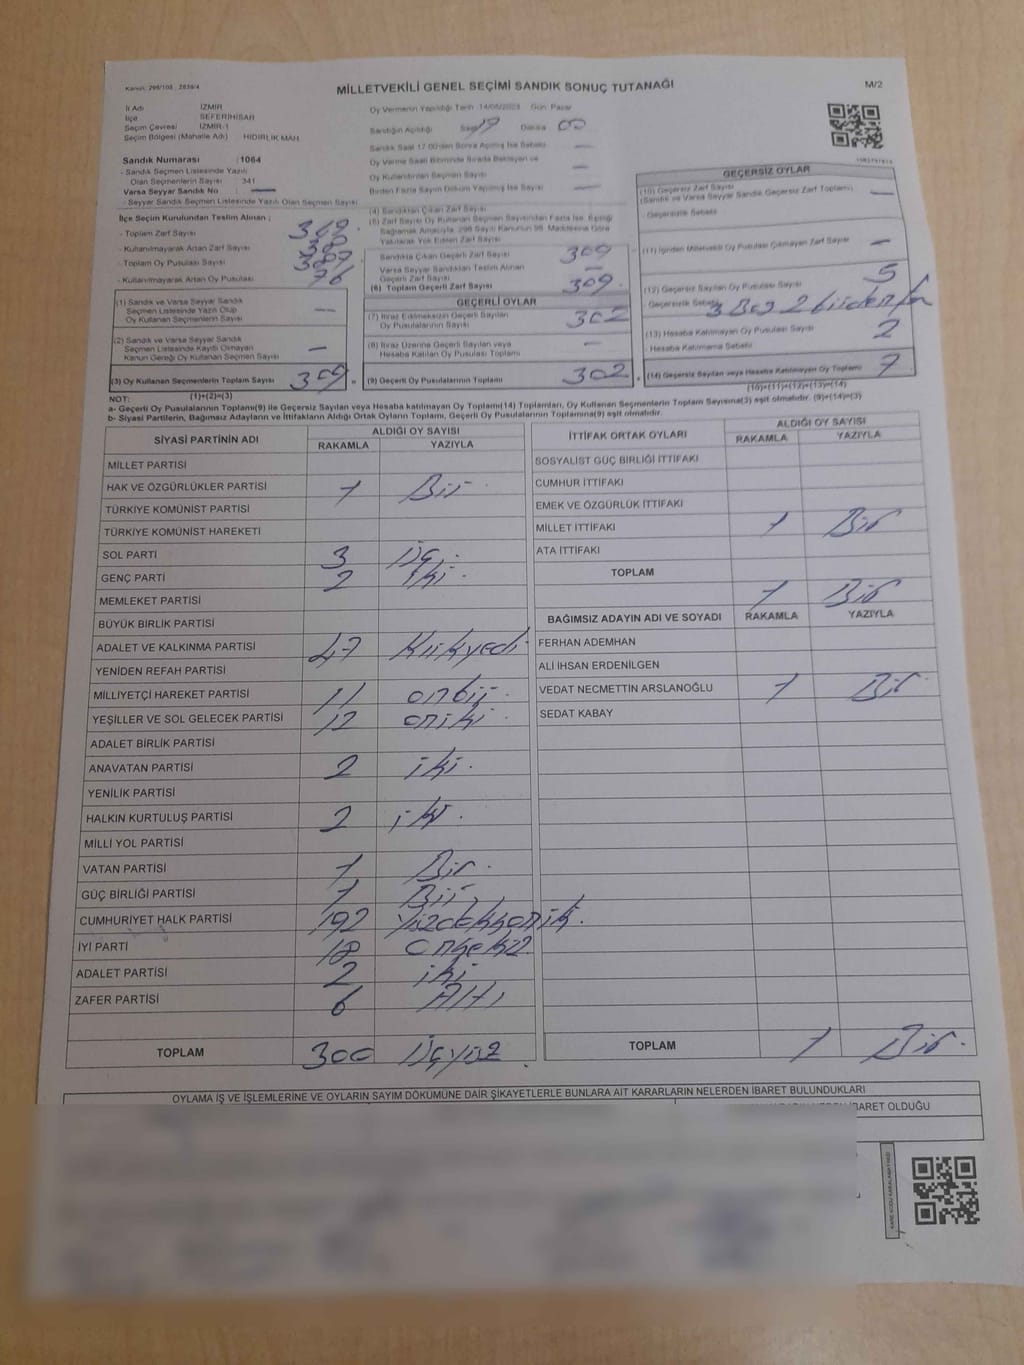 Kanun: 298/105 , 2839/4
MİLLETVEKİLİ GENEL SEÇİMİ SANDIK SONUÇ TUTANAĞI
M/2
İl Adı İZMİR
İlçe SEFERİHİSAR
Seçim Çevresi İZMİR-1
Seçim Bölgesi (Mahalle Adı) HIDIRLIK MAH.
Sandık Numarası : 1064
- Sandık Seçmen Listesinde Yazılı
Olan Seçmenlerin Sayısı 341
Varsa Seyyar Sandık No
- Seyyar Sandık Seçmen Listesinde Yazılı Olan Seçmen Sayısı
Oy Vermenin Yapıldığı Tarih 14/05/2023 Gün Pazar
Sandığın Açıldığı Saat 17 Dakika 00
Sandık Saat 17.00'den Sonra Açılmış İse Sebebi
Oy Verme Saati Bitiminde Sırada Bekleyen ve
Oy Kullandırılan Seçmen Sayısı
Birden Fazla Sayım Döküm Yapılmış İse Sayısı
İlçe Seçim Kurulundan Teslim Alınan ;
- Toplam Zarf Sayısı
- Kullanılmayarak Artan Zarf Sayısı
- Toplam Oy Pusulası Sayısı
- Kullanılmayarak Artan Oy Pusulası 76
(1) Sandık ve Varsa Seyyar Sandık
Seçmen Listesinde Yazılı Olup
Oy Kullanan Seçmenlerin Sayısı
(2) Sandık ve Varsa Seyyar Sandık
Seçmen Listesinde Kaydı Olmayan
Kanun Gereği Oy Kullanan Seçmen Sayısı
(3) Oy Kullanan Seçmenlerin Toplam Sayısı 309
(4) Sandıktan Çıkan Zarf Sayısı
(5) Zarf Sayısı Oy Kullanan Seçmen Sayısından Fazla İse, Eşitliği
Sağlamak Amacıyla, 298 Sayılı Kanunun 98. Maddesine Göre
Yakılarak Yok Edilen Zarf Sayısı
Sandıkta Çıkan Geçerli Zarf Sayısı 309
Varsa Seyyar Sandıktan Teslim Alınan
Geçerli Zarf Sayısı
(6) Toplam Geçerli Zarf Sayısı 309
GEÇERLİ OYLAR
(7) İtiraz Edilmeksizin Geçerli Sayılan
Oy Pusulalarının Sayısı 302
(8) İtiraz Üzerine Geçerli Sayılan veya
Hesaba Katılan Oy Pusulası Toplamı
(9) Geçerli Oy Pusulalarının Toplamı 302
GEÇERSİZ OYLAR
(10) Geçersiz Zarf Sayısı
(Sandık ve Varsa Seyyar Sandık Geçersiz Zarf Toplamı)
- Geçersizlik Sebebi
(11) İçinden Milletvekili Oy Pusulası Çıkmayan Zarf Sayısı
(12) Geçersiz Sayılan Oy Pusulası Sayısı 5
Geçersizlik Sebebi 3 Boş 2 birden fa
(13) Hesaba Katılmayan Oy Pusulası Sayısı 2
Hesaba Katılmama Sebebi
(14) Geçersiz Sayılan veya Hesaba Katılmayan Oy Toplamı 7
(10)+(11)+(12)+(13)=(14)
NOT: (1)+(2)=(3)
a- Geçerli Oy Pusulalarının Toplamı(9) ile Geçersiz Sayılan veya Hesaba katılmayan Oy Toplamı(14) Toplamları, Oy Kullanan Seçmenlerin Toplam Sayısına(3) eşit olmalıdır. (9)+(14)=(3)
b- Siyasi Partilerin, Bağımsız Adayların ve İttifakların Aldığı Ortak Oyların Toplamı, Geçerli Oy Pusulalarının Toplamına(9) eşit olmalıdır.
SİYASİ PARTİNİN ADI ALDIĞI OY SAYISI
RAKAMLA YAZIYLA
MİLLET PARTİSİ
HAK VE ÖZGÜRLÜKLER PARTİSİ 1 Bir
TÜRKİYE KOMÜNİST PARTİSİ
TÜRKİYE KOMÜNİST HAREKETİ
SOL PARTİ 3 üç
GENÇ PARTİ 2 iki
MEMLEKET PARTİSİ
BÜYÜK BİRLİK PARTİSİ
ADALET VE KALKINMA PARTİSİ 47 Kırkyedi
YENİDEN REFAH PARTİSİ
MİLLİYETÇİ HAREKET PARTİSİ 11 onbir
YEŞİLLER VE SOL GELECEK PARTİSİ 12 oniki
ADALET BİRLİK PARTİSİ
ANAVATAN PARTİSİ 2 iki
YENİLİK PARTİSİ
HALKIN KURTULUŞ PARTİSİ 2 iki
MİLLİ YOL PARTİSİ
VATAN PARTİSİ 1 Bir
GÜÇ BİRLİĞİ PARTİSİ 1 Bir
CUMHURİYET HALK PARTİSİ 192
İYİ PARTİ 18 onsekiz
ADALET PARTİSİ 2 iki
ZAFER PARTİSİ 6 Altı
TOPLAM 300 Üçyüz
İTTİFAK ORTAK OYLARI ALDIĞI OY SAYISI
RAKAMLA YAZIYLA
SOSYALİST GÜÇ BİRLİĞİ İTTİFAKI
CUMHUR İTTİFAKI
EMEK VE ÖZGÜRLÜK İTTİFAKI
MİLLET İTTİFAKI 1 Bir
ATA İTTİFAKI
TOPLAM 1 Bir
BAĞIMSIZ ADAYIN ADI VE SOYADI RAKAMLA YAZIYLA
FERHAN ADEMHAN
ALİ İHSAN ERDENİLGEN
VEDAT NECMETTİN ARSLANOĞLU 1 Bir
SEDAT KABAY
TOPLAM 1 Bir
OYLAMA İŞ VE İŞLEMLERİNE VE OYLARIN SAYIM DÖKÜMÜNE DAİR ŞİKAYETLERLE BUNLARA AİT KARARLARIN NELERDEN İBARET BULUNDUKLARI
İBARET OLDUĞU